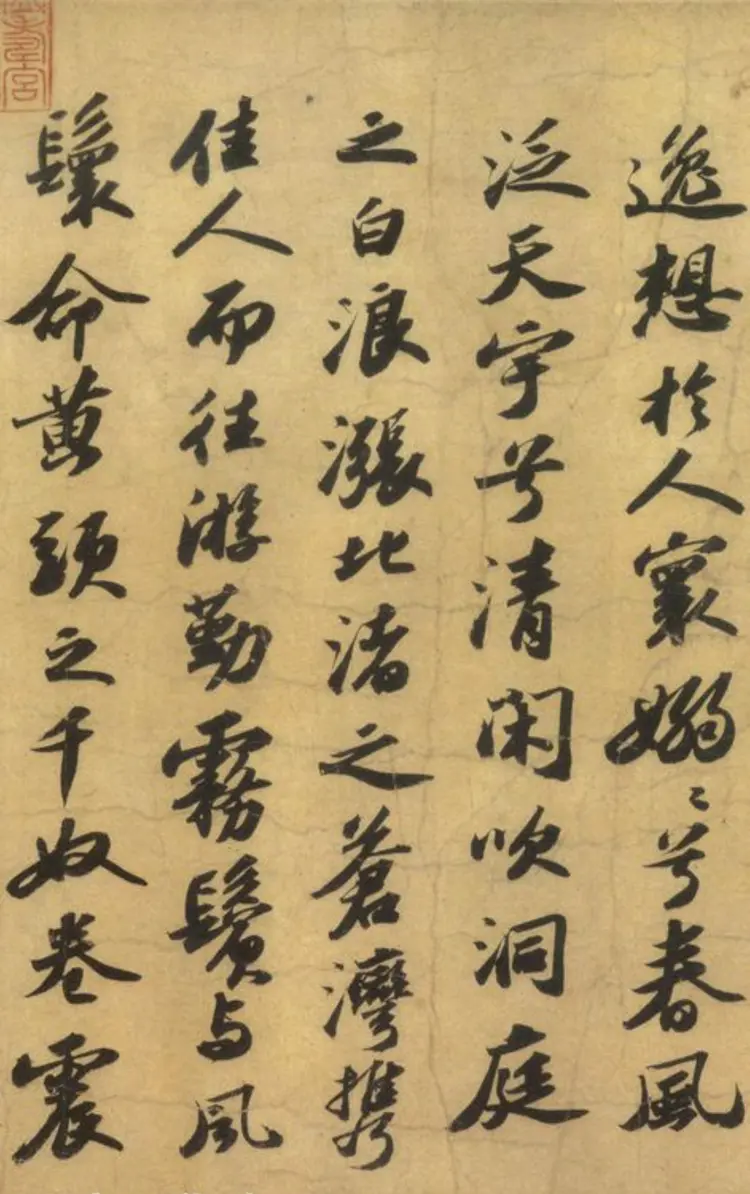 逸想於人寰嫋〻兮春風
泛天宇兮清閑吹洞庭
之白浪漲北渚之蒼灣携
佳人而往游勤霧鬢与風
鬟命黄頭之千奴卷震